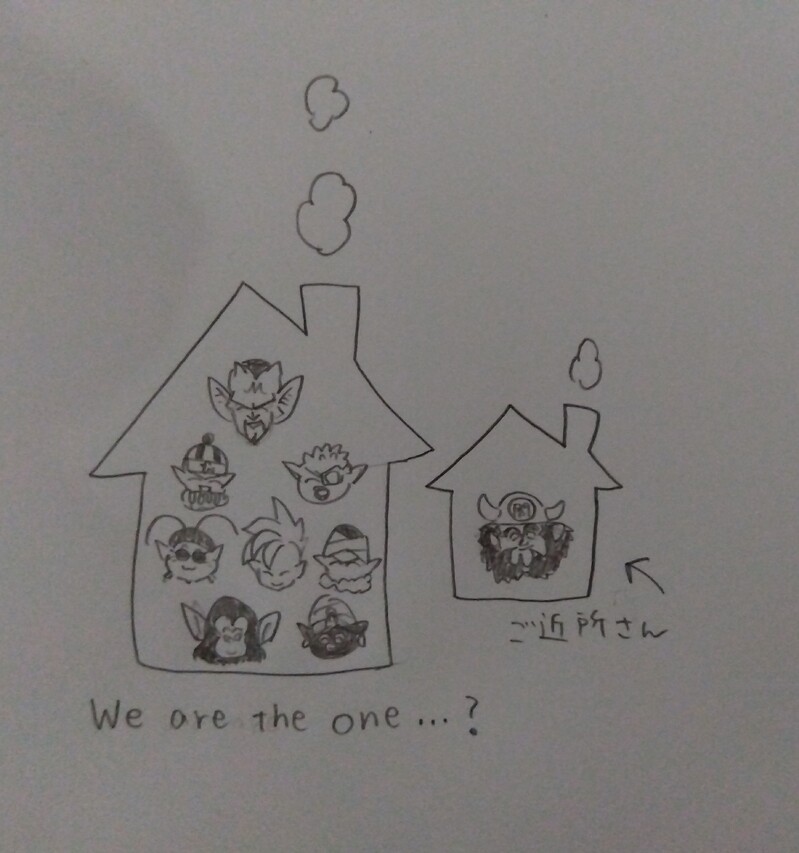 M
M
ご近所さん
We are the one...?